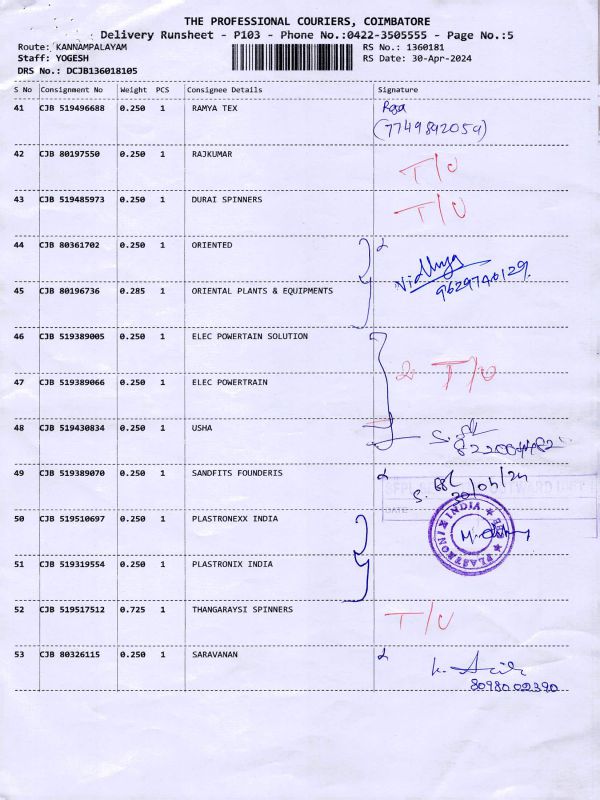 THE PROFESSIONAL COURIERS, COIMBATORE
Delivery Runsheet - P103 - Phone No.:0422-3505555 - Page No.:5
Route: KANNAMPALAYAM RS No.: 1360181
Staff: YOGESH RS Date: 30-Apr-2024
DRS No.: DCJB136018105
S No Consignment No Weight PCS Consignee Details Signature
41 CJB 519496688 0.250 1 RAMYA TEX
(7749892059)
42 CJB 80197550 0.250 1 RAJKUMAR T/U
43 CJB 519485973 0.250 1 DURAI SPINNERS T/U
44 CJB 80361702 0.250 1 ORIENTED
Vidhya
9629740129
45 CJB 80196736 0.285 1 ORIENTAL PLANTS & EQUIPMENTS
46 CJB 519389005 0.250 1 ELEC POWERTAIN SOLUTION
47 CJB 519389066 0.250 1 ELEC POWERTRAIN 2 T/U
48 CJB 519430834 0.250 1 USHA
49 CJB 519389070 0.250 1 SANDFITS FOUNDERIS
50 CJB 519510697 0.250 1 PLASTRONEXX INDIA
PLASTRONIX INDIA
51 CJB 519319554 0.250 1 PLASTRONIX INDIA
52 CJB 519517512 0.725 1 THANGARAYSI SPINNERS T/U
53 CJB 80326115 0.250 1 SARAVANAN
8098002390